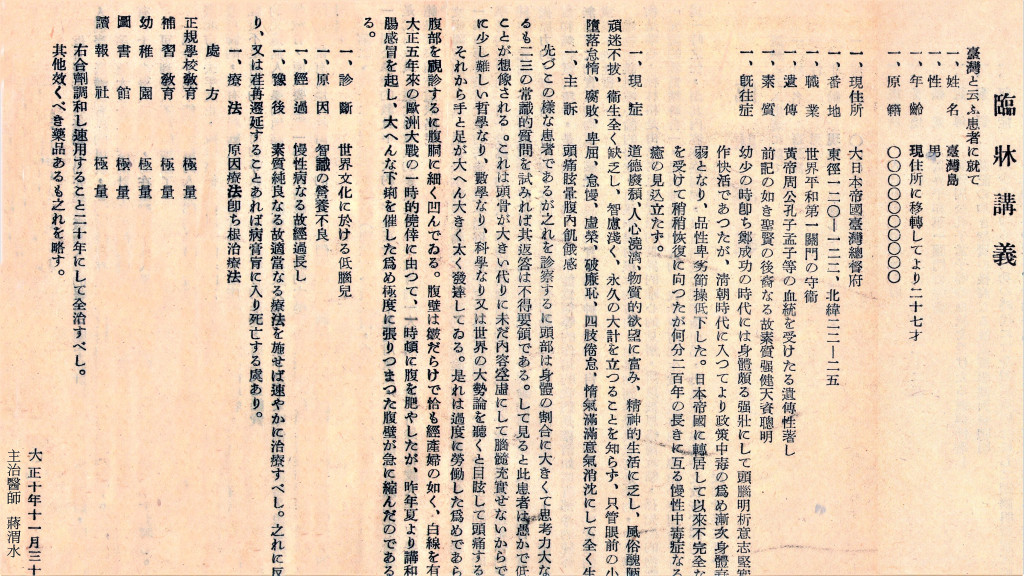 臨牀講義
臺灣と云ふ患者に就て
一、姓名 臺灣島
一、性 男
一、年齡 現住所に移轉してより二十七才
一、原籍 〇〇〇〇〇〇〇〇〇
一、現住所 大日本帝國臺灣總督府
一、番地 東經一二〇—一二二、北緯二二—二五
一、職業 世界平和第一關門の守衞
一、遺傳 黃帝周公孔子孟子等の血統を受けたる遺傳性著し
一、素質 前記の如き聖賢の後裔なる故素質强健天資聰明
一、既往症 幼少の時卽ち鄭成功の時代には身體頗る强壯にして頭腦明析意志堅
作快活であつたが、清朝時代に入つてより政策中毒の爲め漸次身體
弱となり、品性卑劣節操低下した。日本帝國に轉居して以來不完全な
を受けて稍稍恢復に向つたが何分二百年の長きに亙る慢性中毒症なる
癒の見込立たず。
一、現症 道德廢頽、人心澆漓、物質的欲望に富み、精神的生活に乏し、風俗醜陋
頑迷不拔、衞生全く缺乏し、智慮淺く、永久の大計を立つることを知らず、只管眼前の小
墮落怠惰、腐敗、卑屈、怠慢、虛榮、破廉恥、四肢倦怠、惰氣滿滿意氣消沈にして全く生
一、主訴 頭痛眩暈腹內飢餓感
先づこの樣な患者であるが之れを診察するに頭部は身體の割合に大きくて思考力大な
るも二三の常識的質問を試みれば其返答は不得要領である。して見ると此患者は愚かで低
ことが想像される。これは頭骨が大きい代りに未だ內容空虛にして腦髓充實せないからで
に少し難しい哲學なり、數學なり、科學なり又は世界の大勢論を聽くと目眩して頭痛する
それから手と足が大へん大きく太く發達してゐる。是れは過度に勞働した爲めであら
腹部を觀診するに腹胴に細く凹んでゐる。腹壁は皺だらけで恰も經產婦の如く、白線を有
大正五年來の歐洲大戰の一時的僥倖に由つて、一時頓に腹を肥やしたが、昨年夏より講和
腸感冒を起し、大へんな下痢を催した爲め極度に張りつまつた腹壁が急に縮んだのである
る。
一、診斷 世界文化に於ける低腦兒
一、原因 智識の營養不良
一、經過 慢性病なる故經過長し
一、豫後 素質純良なる故適當なる療法を施せば速やかに治療すべし。之れに反
り、又は荏苒遷延することあれば病膏肓に入り死亡する處あり。
一、療法 原因療法卽ち根治療法
處方
正規學校敎育 極量
補習敎育 極量
幼稚園 極量
圖書館 極量
讀報社 極量
右合劑調和し連用すること二十年にして全治すべし。
其他效くべき藥品あるも之れを略す。
大正十年十一月三十
主治醫師 蔣渭水